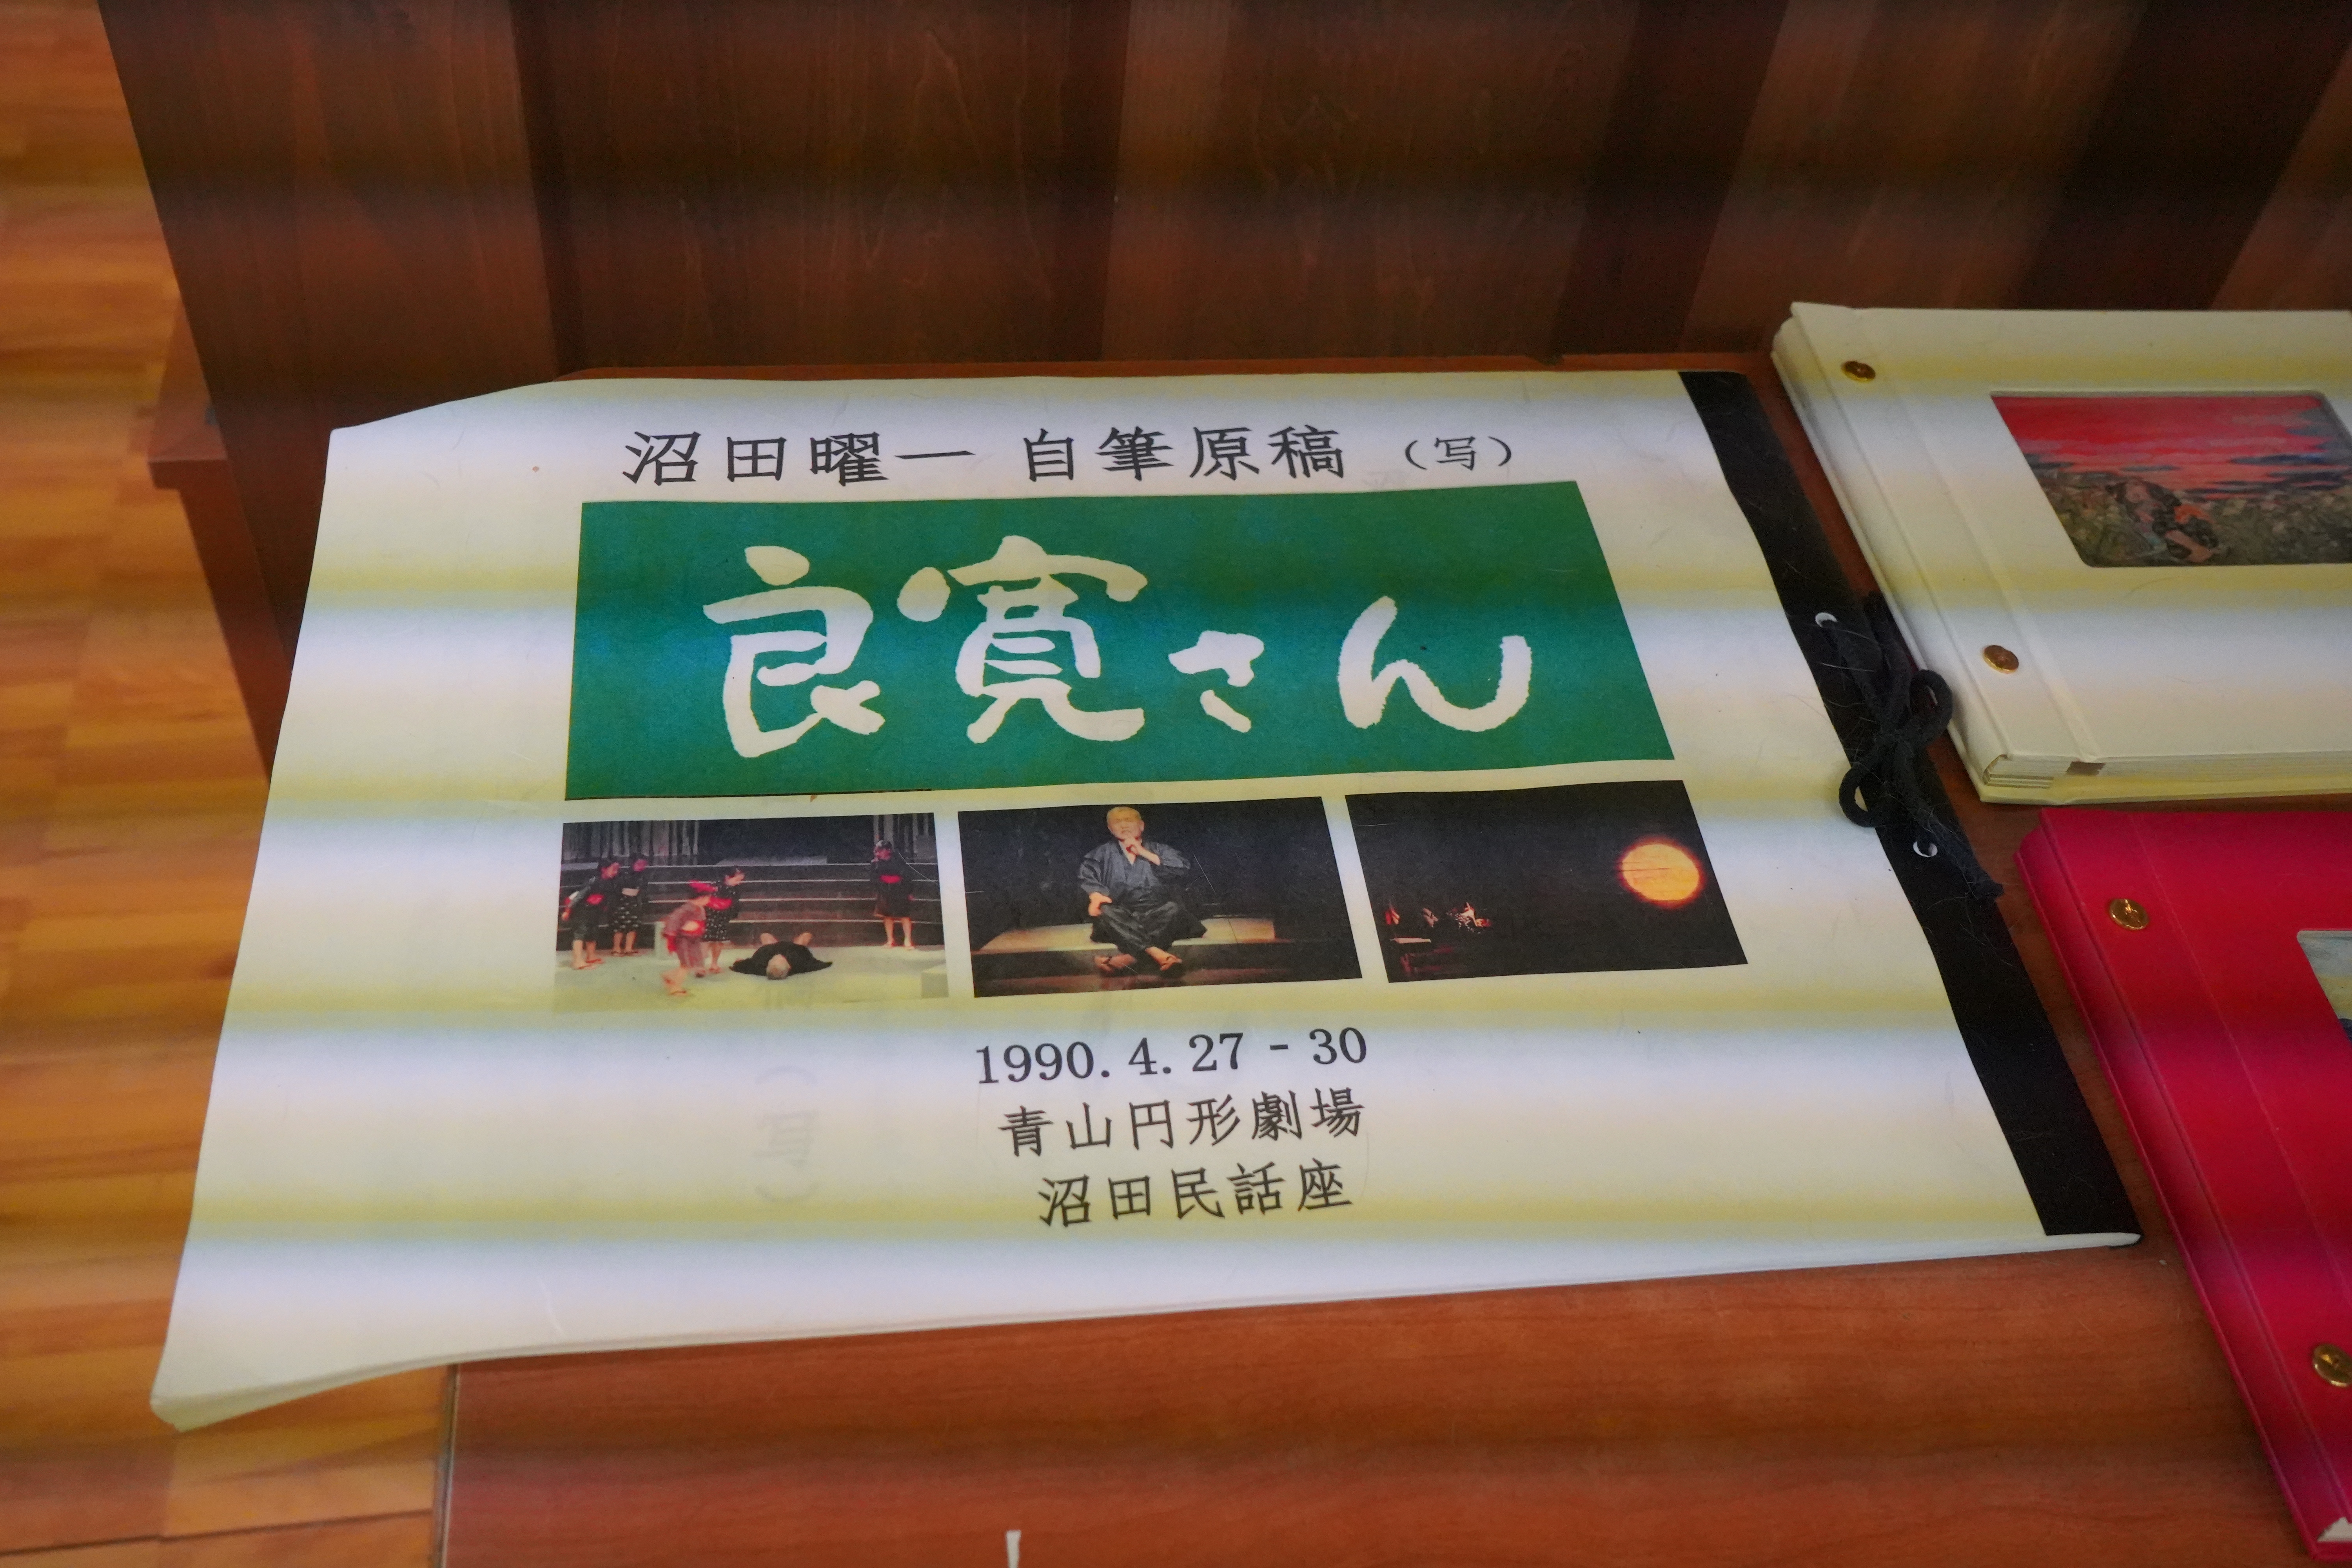 沼田曜一 自筆原稿（写）
良寛さん
1990. 4. 27 - 30
青山円形劇場
沼田民話座